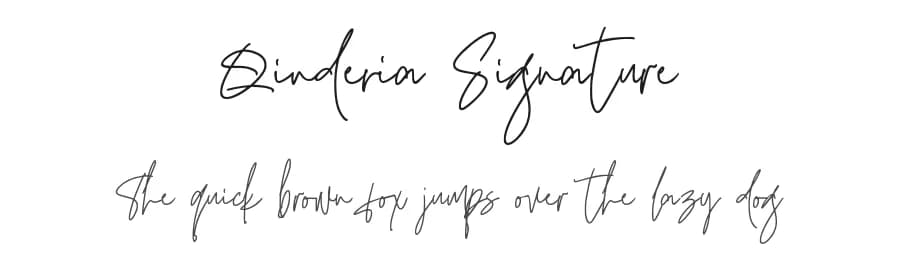 Qinderia Signature
She quick brown fox jumps over the lazy dog